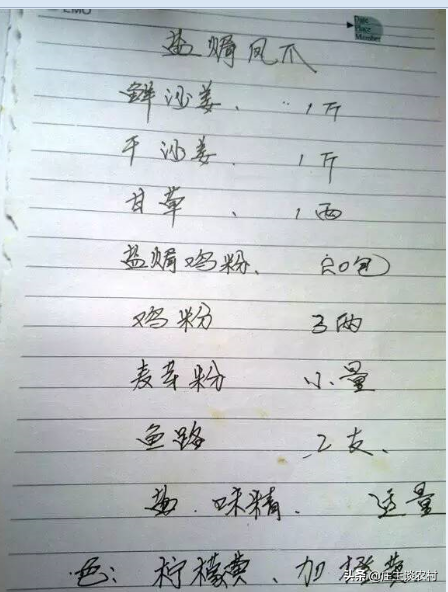 盐焗凤爪
鲜沙姜、 1斤
干沙姜、 1斤
甘草、 1两
盐焗鸡粉、 包
鸡粉 3两
麦芽粉 小量
鱼露 2支、
盐、味精、 适量
色：柠檬黄、加橙黄
头条@庄主谈农村